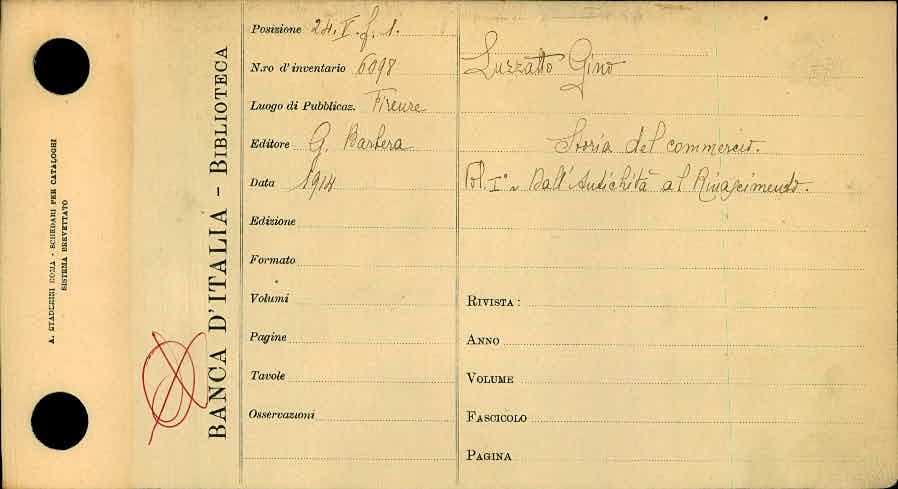 A. STADERINI ROMA - SCHEDARI PER CATALOGHI
SISTEMA BREVETTATO
BANCA D'ITALIA - BIBLIOTECA
Posizione 24. V. f. 1.
N.ro d'inventario 6098
Luogo di Pubblicaz. Firenze
Editore G. Barbera
Data 1914
Edizione
Formato
Volumi
Pagine
Tavole
Osservazioni
Luzzatto Gino
Storia del commercio.
Vol. I° Dall'Antichità al Rinascimento.
RIVISTA :
ANNO
VOLUME
FASCICOLO
PAGINA